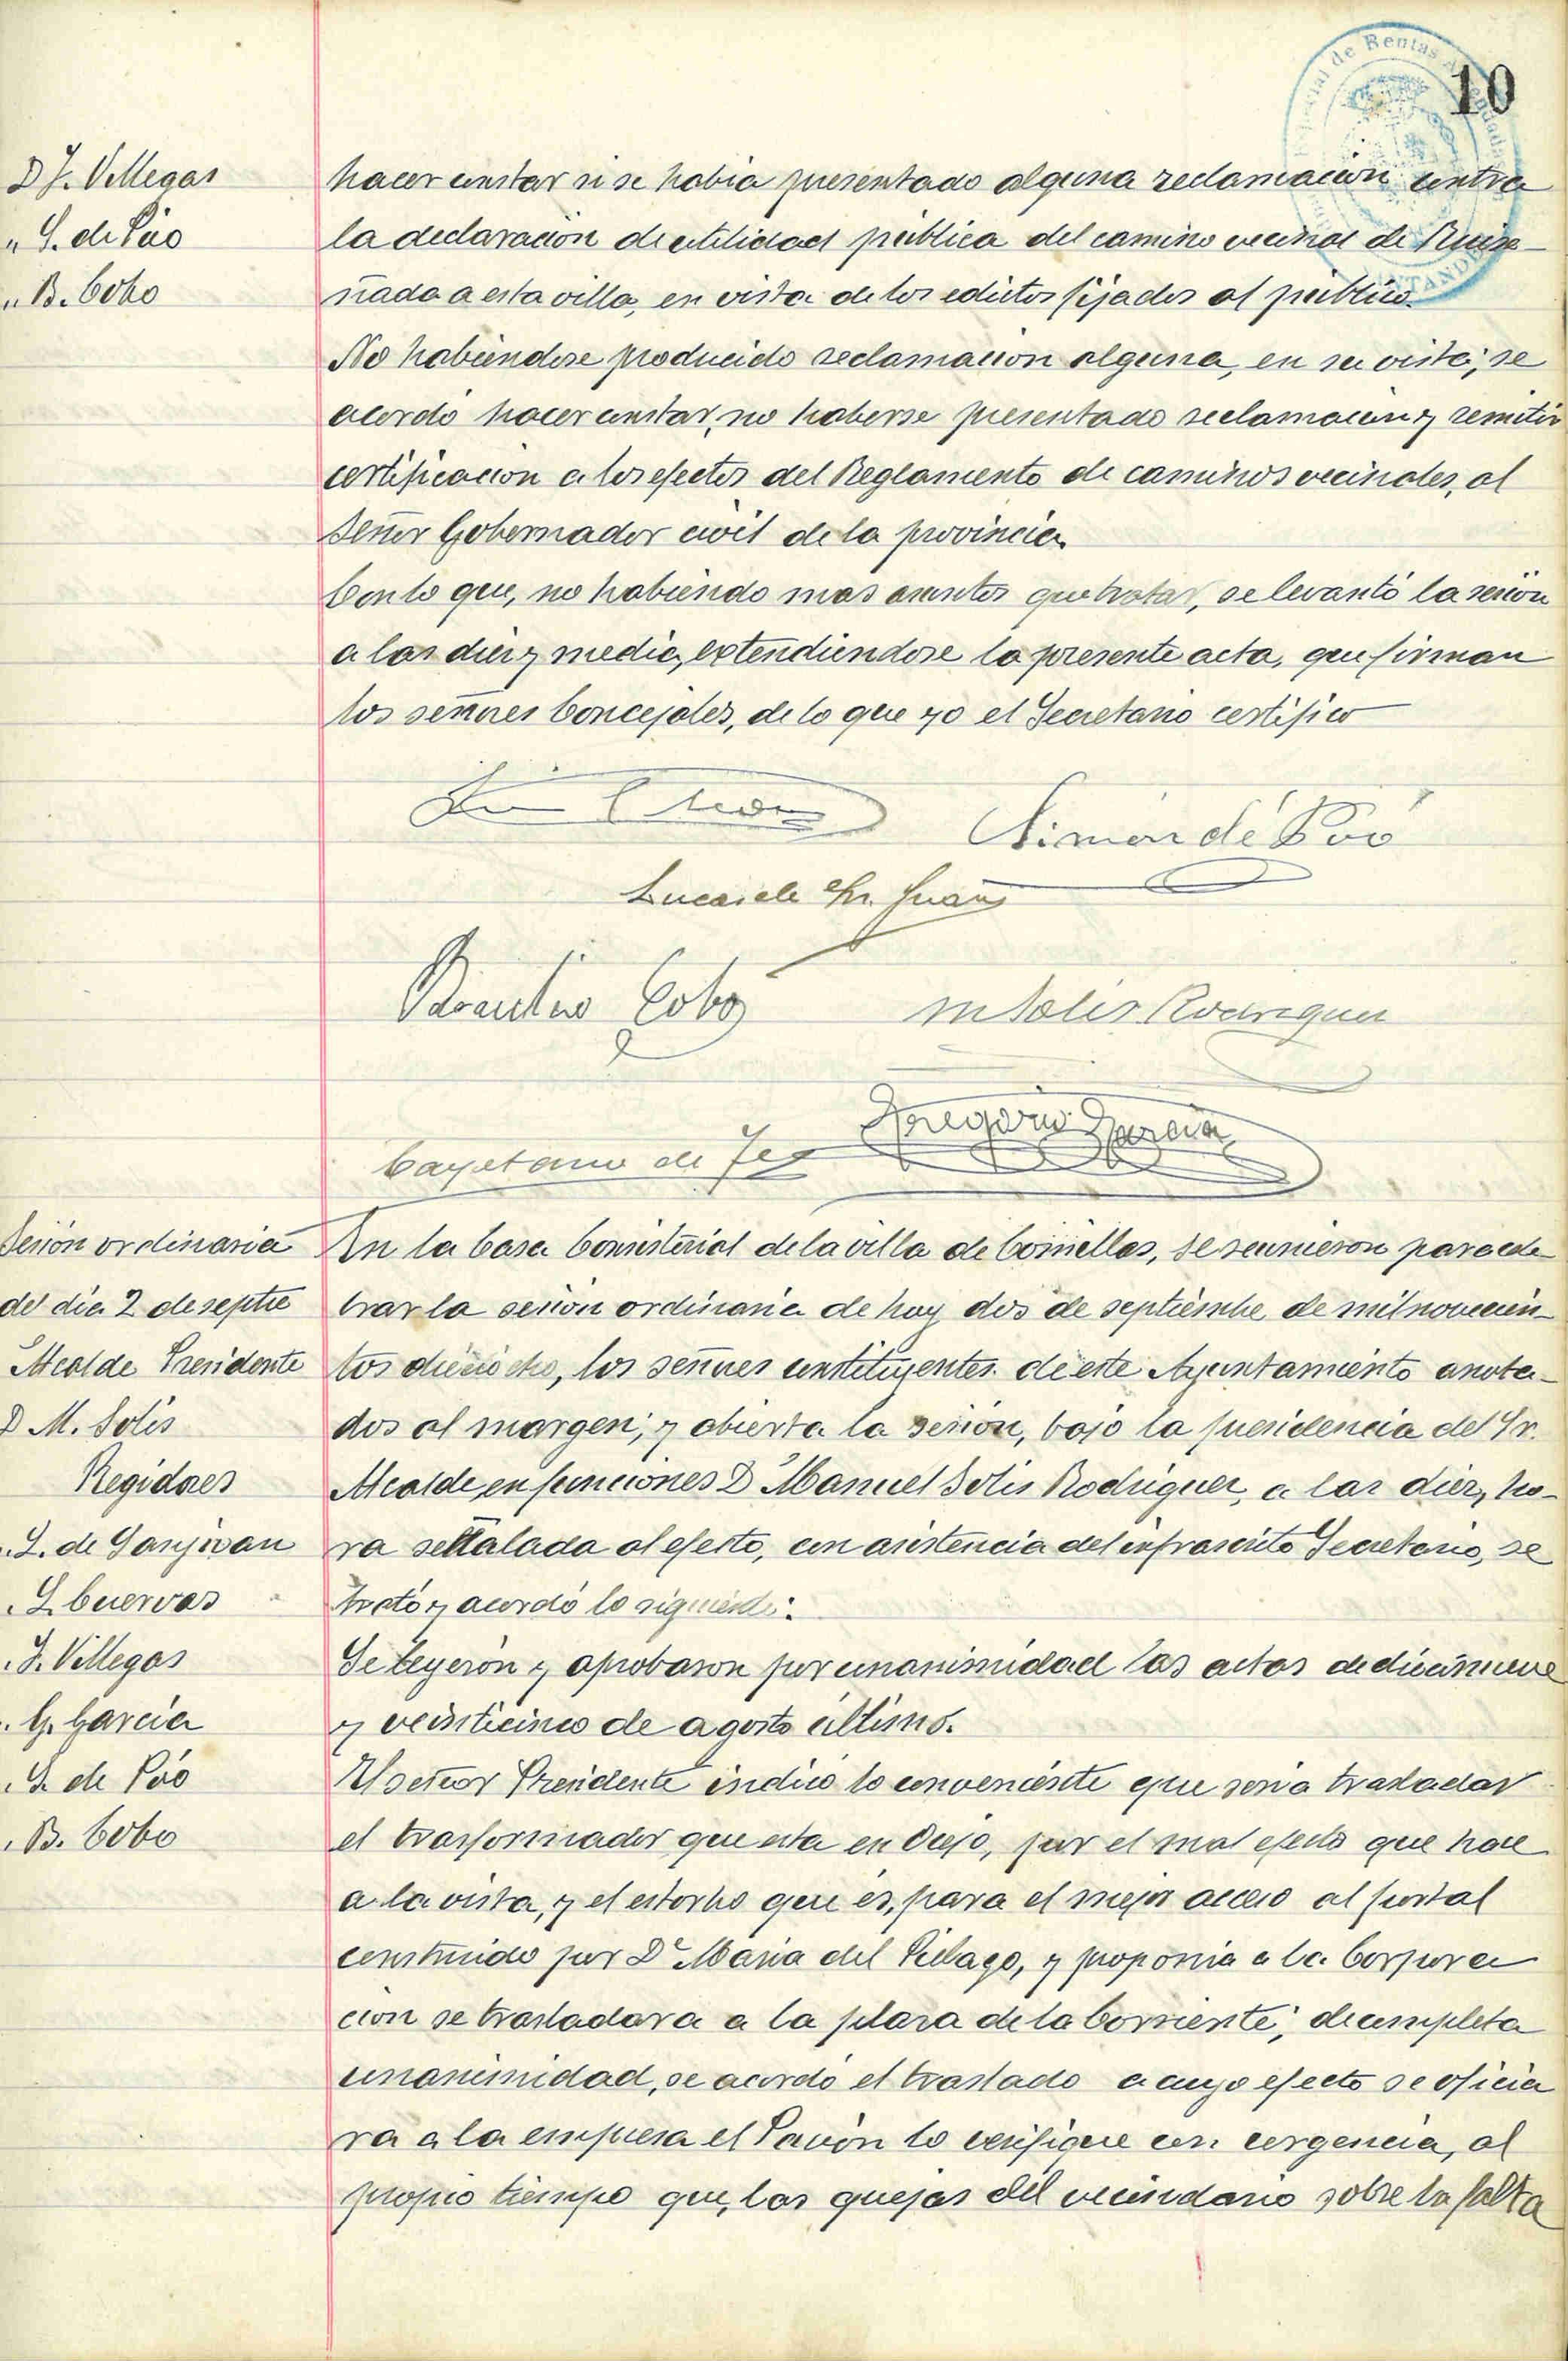 10
D J. Villegas
" S. de Póo
" B. Cobo
hacer constar si se habia presentado alguna reclamación contra
la declaración de utilidad pública del camino vecinal de Ruise-
ñada a esta villa, en vista de los edictos fijados al público.
No habiendose producido reclamacion alguna, en su vista, se
acordó hacer constar, no haberse presentado reclamacion y remitir
certificacion a los efectos del Reglamento de caminos vecinales, al
Señor Gobernador civil de la provincia.
Con lo que, no habiendo mas asuntos que tratar, se levantó la sesión
a las diez y media, extendiendose la presente acta, que firman
los señores Concejales, de lo que yo el Secretario certifico
Simón de Póo
Lucas de Sn. Juan
Cobo
M Solis Rodriguez
Gregorio Garcia
Cayetano de
Sesión ordinaria
del dia 2 de septre
Alcalde Presidente
D M. Solis
Regidores
. L. de Sanjuan
. Cuervas
. J. Villegas
. G. Garcia
. S. de Póo
. B. Cobo
En la Casa Consistorial de la villa de Comillas, se reunieron para cele
brar la sesion ordinaria de hoy dos de septiembre de mil novecien-
tos dieciocho, los señores constituyentes de este Ayuntamiento anota-
dos al margen; y abierta la sesion, bajo la presidencia del Sr.
Alcalde en funciones D Manuel Solis Rodriguez, a las diez, ho-
ra señalada al efecto, con asistencia del infrascrito Secretario, se
trató y acordó lo siguiente:
Se leyeron y aprobaron por unanimidad las actas de diecinueve
y veinticinco de agosto último.
El señor Presidente indicó lo conveniente que seria trasladar
el trasformador que esta en, por el mal efecto que hace
a la vista, y el estorbo que es, para el mejor acceso al portal
construido por Dª Maria del Piélago, y proponia a la Corpora
cion se trasladara a la plaza de la Corriente; de completa
unanimidad, se acordó el traslado a cuyo efecto se oficia
ra a la empresa el lo verifique con urgencia, al
propio tiempo que, las quejas del vecindario sobre la falta